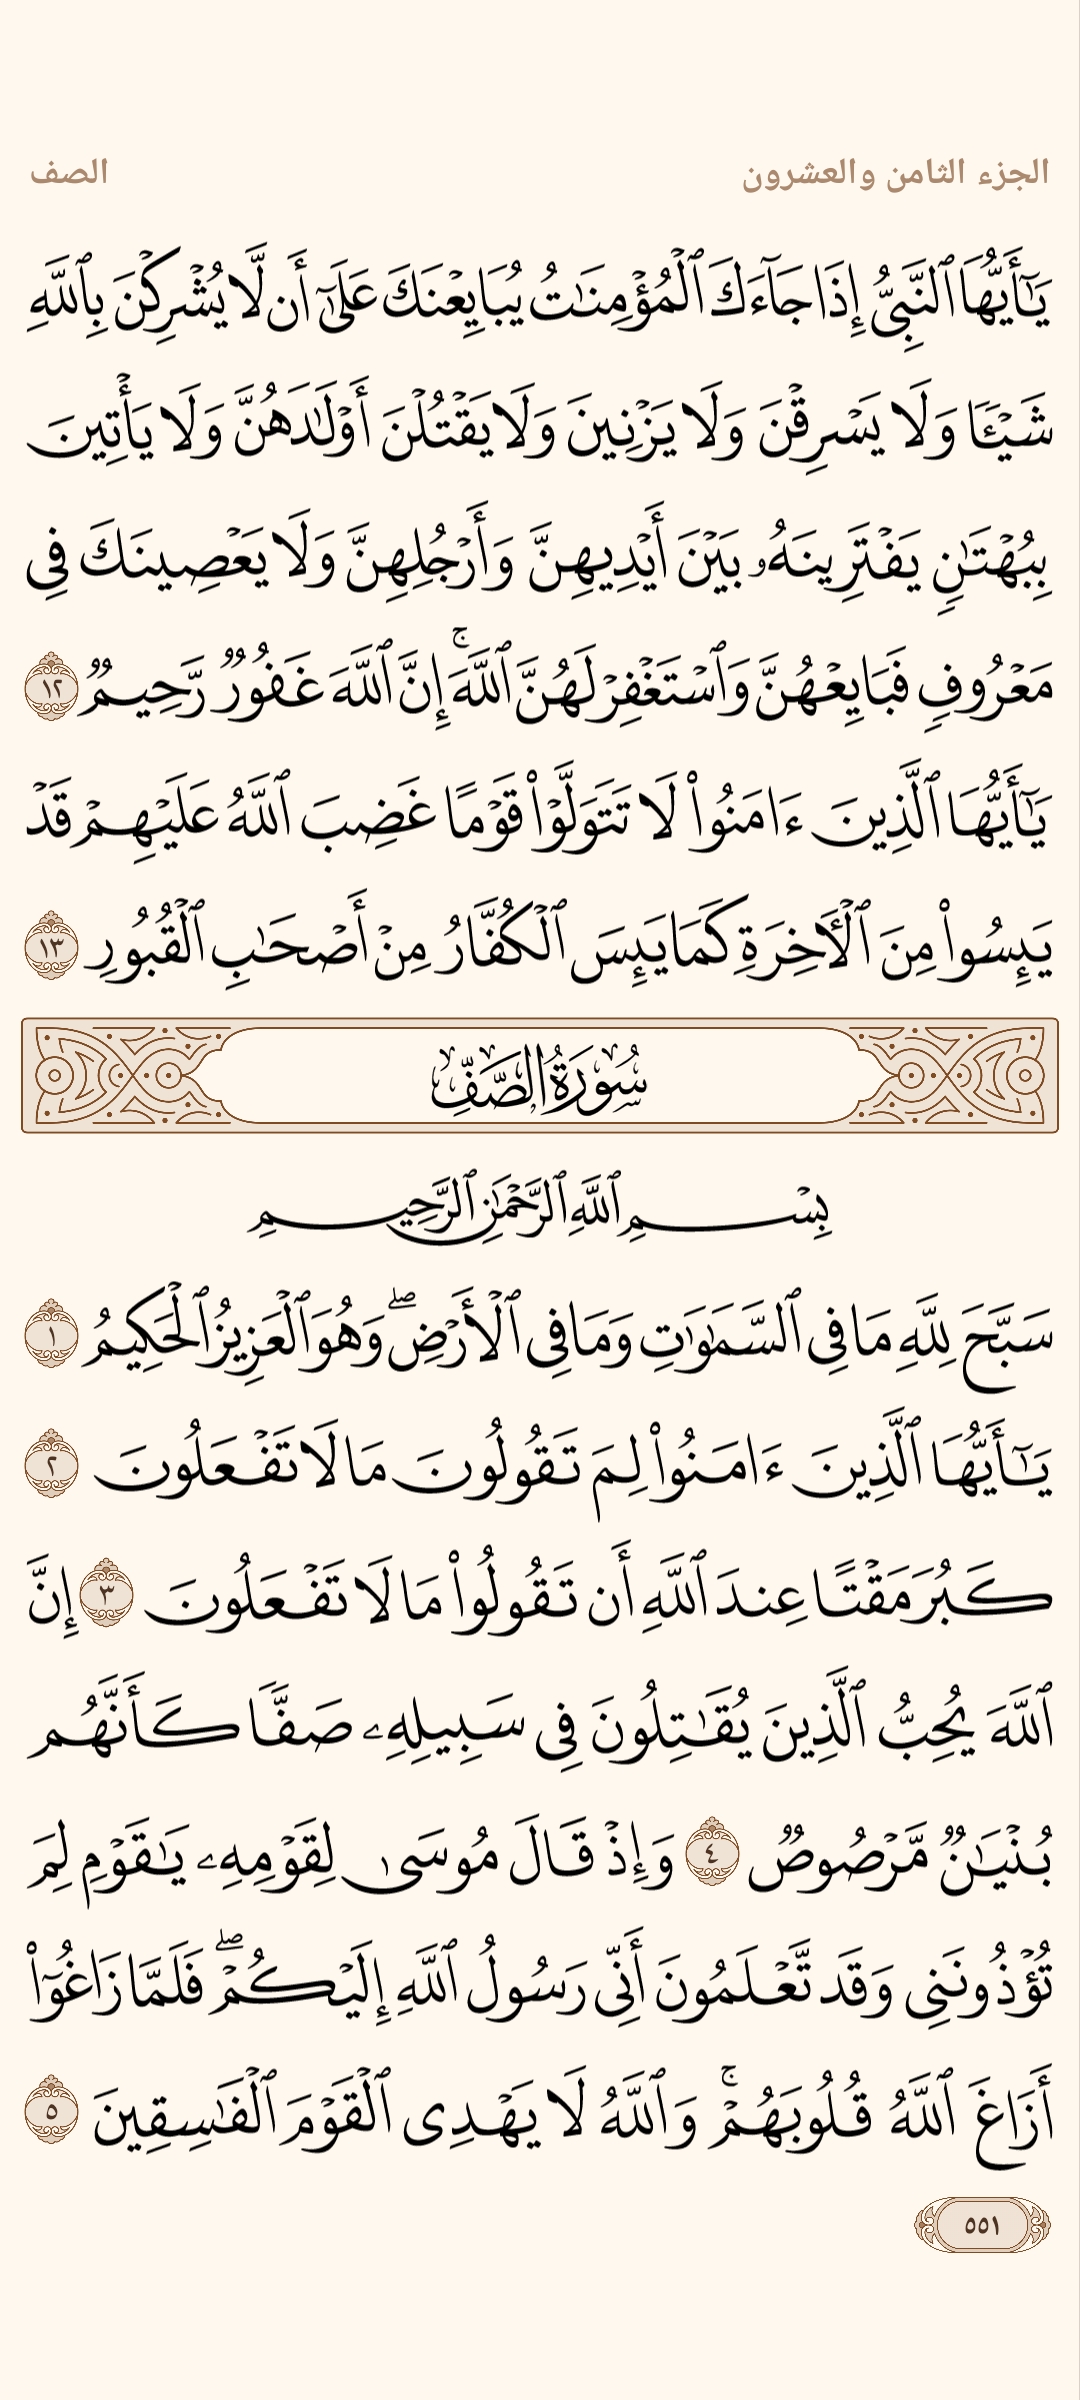 الجزء الثامن والعشرون
الصف
يَٰٓأَيُّهَا ٱلنَّبِيُّ إِذَا جَآءَكَ ٱلْمُؤْمِنَٰتُ يُبَايِعْنَكَ عَلَىٰٓ أَن لَّا يُشْرِكْنَ بِٱللَّهِ
شَيْـًٔا وَلَا يَسْرِقْنَ وَلَا يَزْنِينَ وَلَا يَقْتُلْنَ أَوْلَٰدَهُنَّ وَلَا يَأْتِينَ
بِبُهْتَٰنٍ يَفْتَرِينَهُۥ بَيْنَ أَيْدِيهِنَّ وَأَرْجُلِهِنَّ وَلَا يَعْصِينَكَ فِى
مَعْرُوفٍ فَبَايِعْهُنَّ وَٱسْتَغْفِرْ لَهُنَّ ٱللَّهَ ۚ إِنَّ ٱللَّهَ غَفُورٌ رَّحِيمٌ ١٢
يَٰٓأَيُّهَا ٱلَّذِينَ ءَامَنُوا۟ لَا تَتَوَلَّوْا۟ قَوْمًا غَضِبَ ٱللَّهُ عَلَيْهِمْ قَدْ
يَئِسُوا۟ مِنَ ٱلْـَٔاخِرَةِ كَمَا يَئِسَ ٱلْكُفَّارُ مِنْ أَصْحَٰبِ ٱلْقُبُورِ ١٣
سُورَةُ الصَّفِّ
بِسْمِ ٱللَّهِ ٱلرَّحْمَٰنِ ٱلرَّحِيمِ
سَبَّحَ لِلَّهِ مَا فِى ٱلسَّمَٰوَٰتِ وَمَا فِى ٱلْأَرْضِ ۖ وَهُوَ ٱلْعَزِيزُ ٱلْحَكِيمُ ١
يَٰٓأَيُّهَا ٱلَّذِينَ ءَامَنُوا۟ لِمَ تَقُولُونَ مَا لَا تَفْعَلُونَ ٢
كَبُرَ مَقْتًا عِندَ ٱللَّهِ أَن تَقُولُوا۟ مَا لَا تَفْعَلُونَ ٣ إِنَّ
ٱللَّهَ يُحِبُّ ٱلَّذِينَ يُقَٰتِلُونَ فِى سَبِيلِهِۦ صَفًّا كَأَنَّهُم
بُنْيَٰنٌ مَّرْصُوصٌ ٤ وَإِذْ قَالَ مُوسَىٰ لِقَوْمِهِۦ يَٰقَوْمِ لِمَ
تُؤْذُونَنِى وَقَد تَّعْلَمُونَ أَنِّى رَسُولُ ٱللَّهِ إِلَيْكُمْ ۖ فَلَمَّا زَاغُوٓا۟
أَزَاغَ ٱللَّهُ قُلُوبَهُمْ ۚ وَٱللَّهُ لَا يَهْدِى ٱلْقَوْمَ ٱلْفَٰسِقِينَ ٥
٥٥١